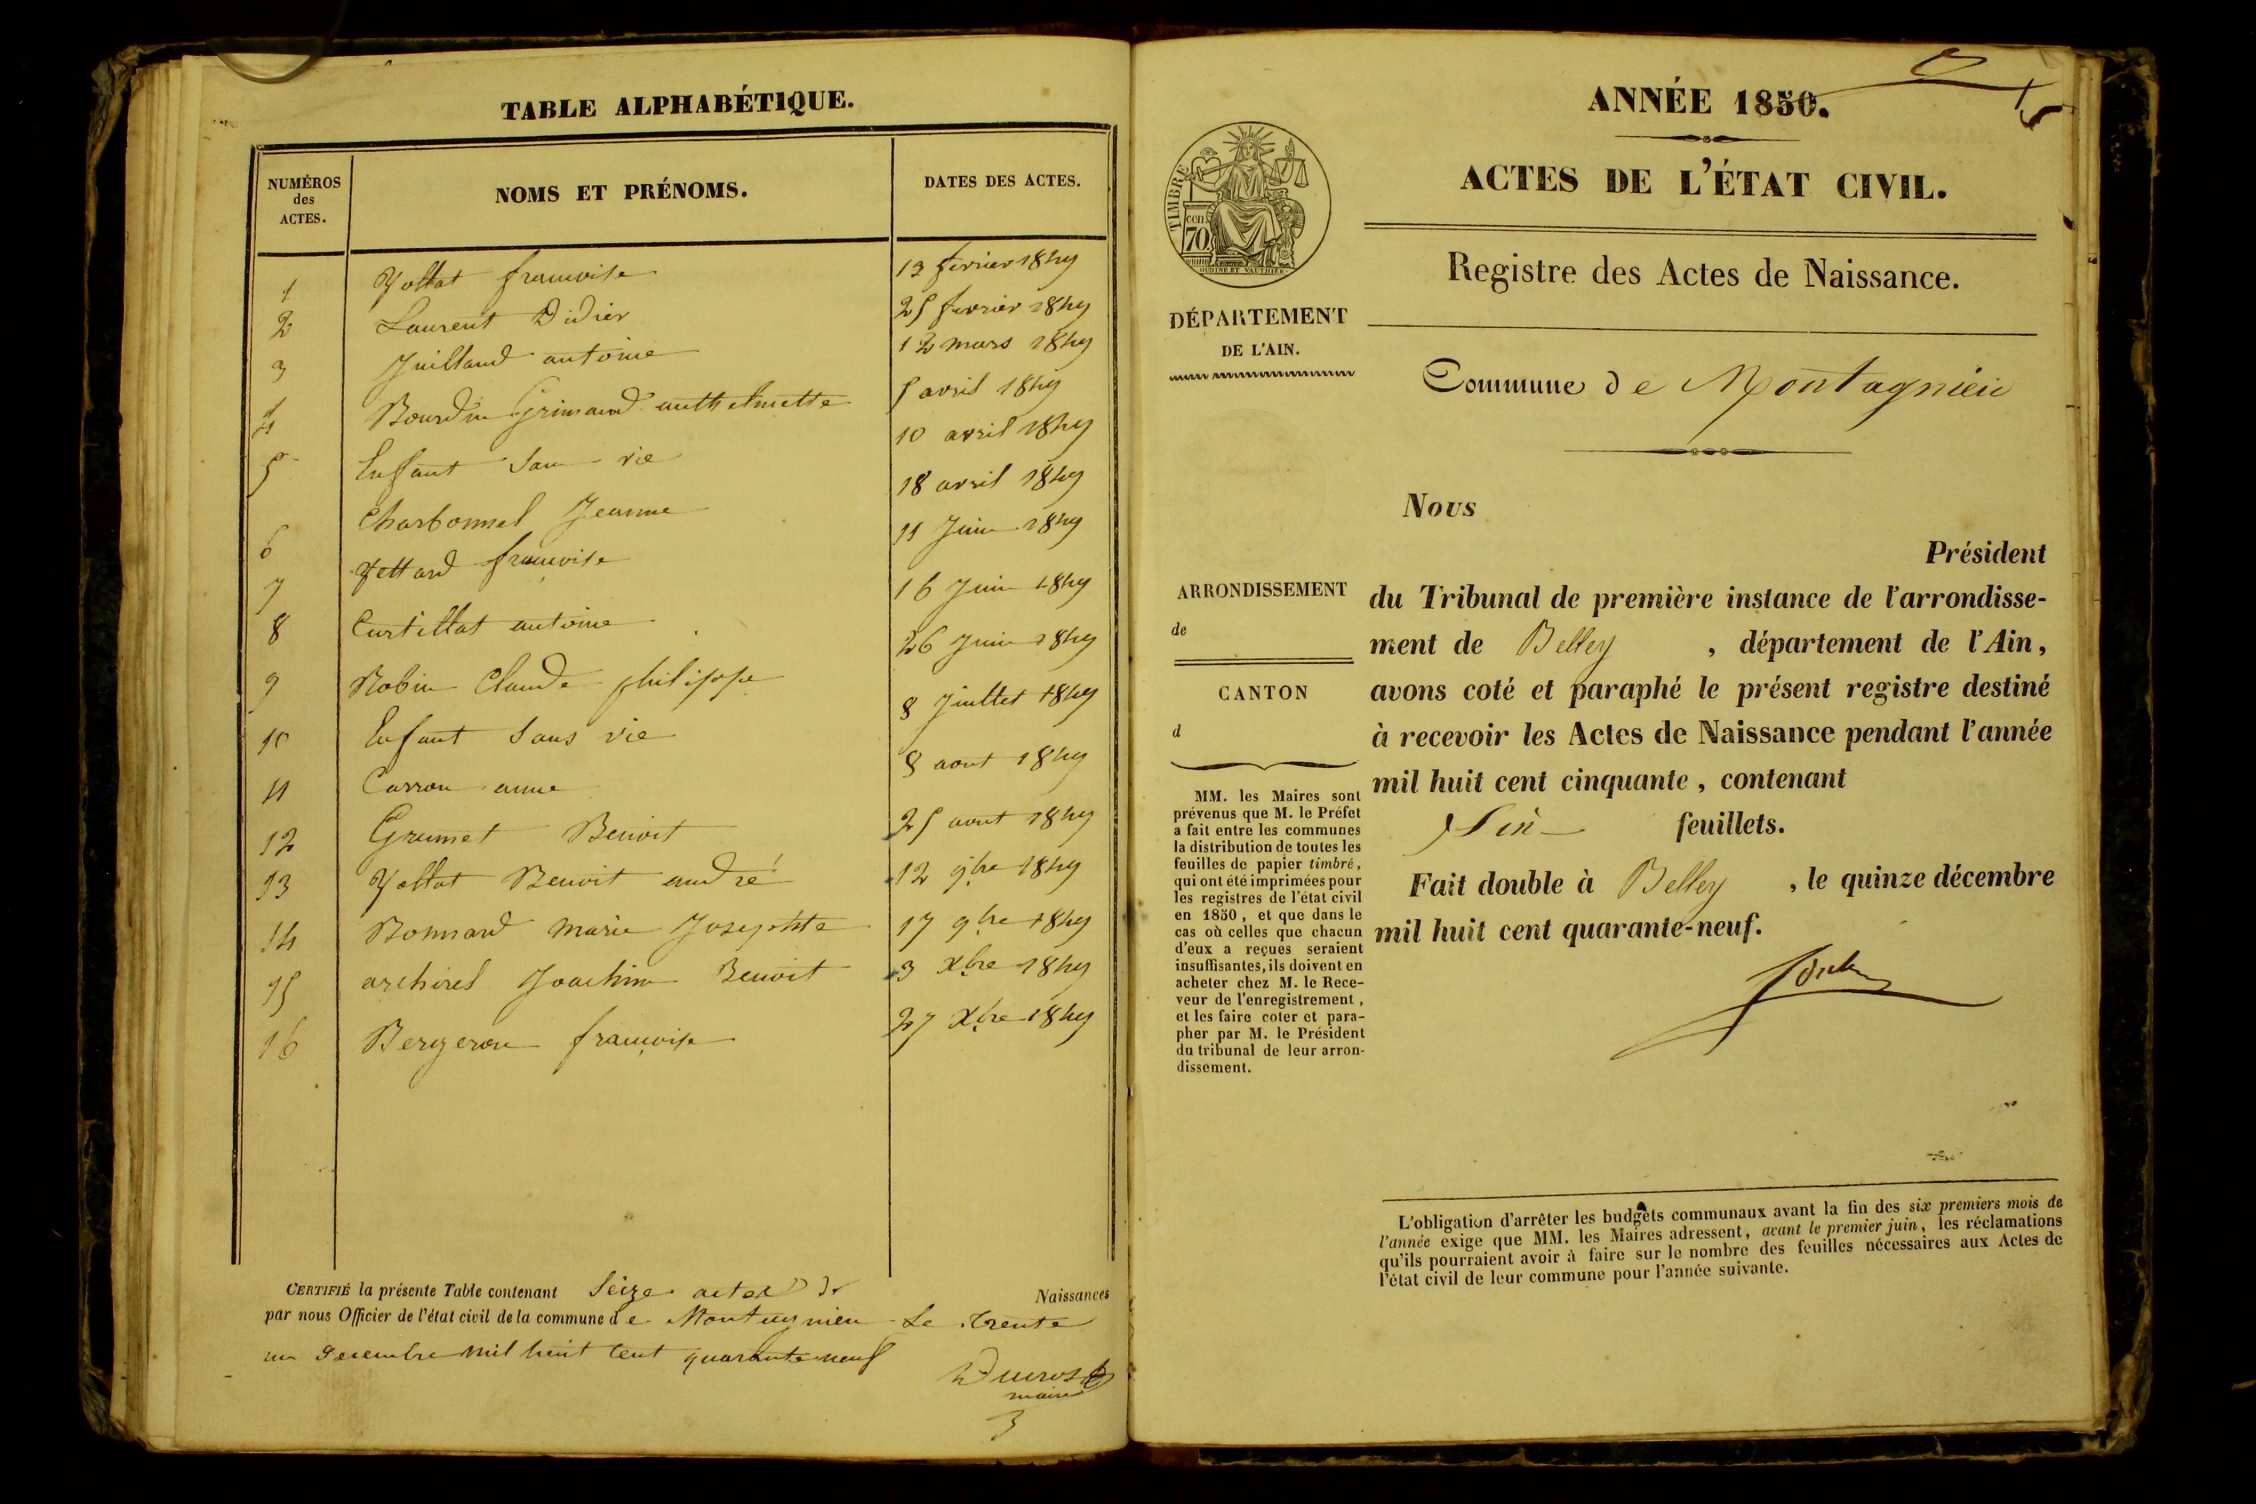 TABLE ALPHABÉTIQUE.
NUMÉROS des ACTES.
NOMS ET PRÉNOMS.
DATES DES ACTES.
1 Yollat francoise 13 fevrier 1849
2 Laurent Didier 25 fevrier 1849
3 Juilland antoine 12 mars 1849
4 Bourdin Grimaud anthelmette 5 avril 1849
5 Enfant San vie 10 avril 1849
6 Charbonnel Jeanne 18 avril 1849
7 francoise 11 Juin 1849
8 Curtillat antoine 16 Juin 1849
9 Robin Claude philippe 26 Juin 1849
10 Enfant Sans vie 8 Juillet 1849
11 Carron anne 8 aout 1849
12 Grumet Benoit 25 aout 1849
13 Yollat Benoit andré 12 9bre 1849
14 Bonnard marie Josephte 17 9bre 1849
15 Joachim Benoit 3 Xbre 1849
16 Bergeron françoise 27 Xbre 1849
CERTIFIÉ la présente Table contenant Seize actes de Naissances
par nous Officier de l'état civil de la commune de Montagnieu Le Trente
un Decembre mil huit cent quarante neuf
maire
3
ANNÉE 1850.
ACTES DE L'ÉTAT CIVIL.
TIMBRE
70 cen.
OUDINÉ ET VAUTHIER
Registre des Actes de Naissance.
DÉPARTEMENT
DE L'AIN.
Commune de Montagnieu
Nous
Président
du Tribunal de première instance de l'arrondisse-
ment de Belley , département de l'Ain,
avons coté et paraphé le présent registre destiné
à recevoir les Actes de Naissance pendant l'année
mil huit cent cinquante, contenant
Six feuillets.
Fait double à Belley , le quinze décembre
mil huit cent quarante-neuf.
ARRONDISSEMENT
de
CANTON
d
MM. les Maires sont
prévenus que M. le Préfet
a fait entre les communes
la distribution de toutes les
feuilles de papier timbré,
qui ont été imprimées pour
les registres de l'état civil
en 1850, et que dans le
cas où celles que chacun
d'eux a reçues seraient
insuffisantes, ils doivent en
acheter chez M. le Rece-
veur de l'enregistrement,
et les faire coter et para-
pher par M. le Président
du tribunal de leur arron-
dissement.
L'obligation d'arrêter les budgets communaux avant la fin des six premiers mois de
l'année exige que MM. les Maires adressent, avant le premier juin, les réclamations
qu'ils pourraient avoir à faire sur le nombre des feuilles nécessaires aux Actes de
l'état civil de leur commune pour l'année suivante.